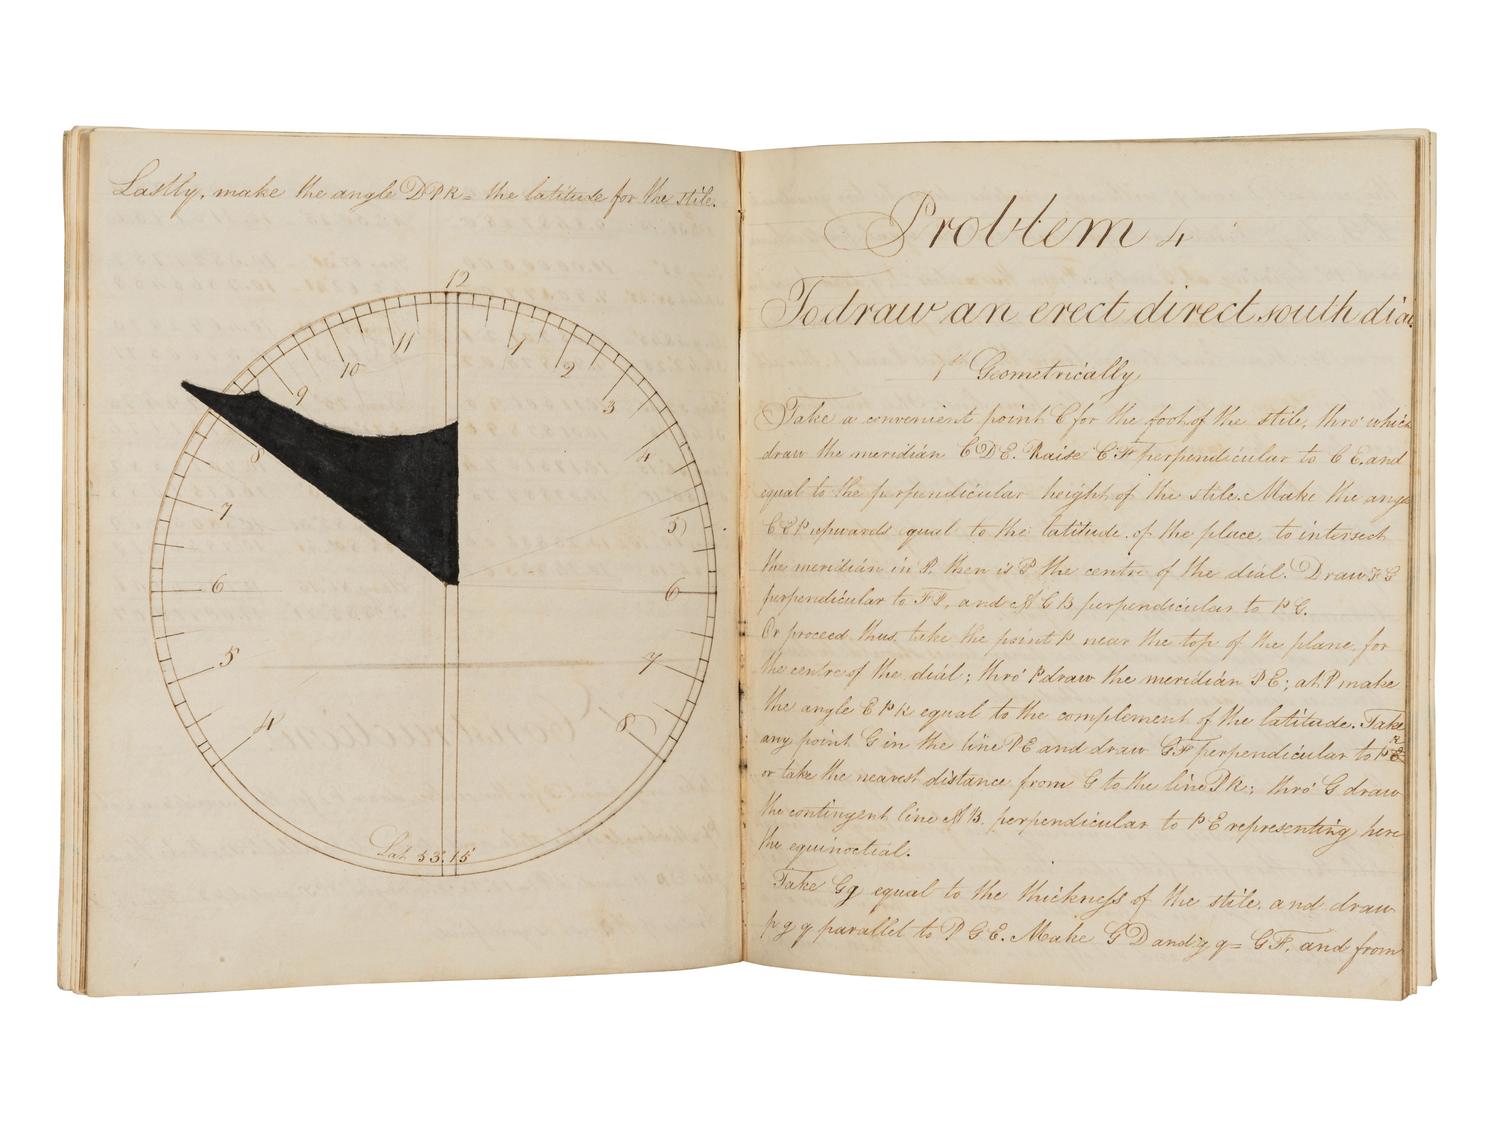 Lastly, make the angle DPR = the latitude for the stile.
12
11 1
10 2
9 3
8 4
7 5
6 6
5 7
4 8
Lat. 53.15
Problem 4
To draw an erect direct south dial
1st Geometrically,
Take a convenient point C for the foot of the stile, thro' which
draw the meridian CDE. Raise CF perpendicular to CE, and
equal to the perpendicular height of the stile. Make the angle
upwards qual to the latitude of the place, to intersect
the meridian in P. then is P the centre of the dial. Draw FG
perpendicular to FP, and AGB perpendicular to PG.
Or proceed thus, take the point P near the top of the plane for
the centre of the dial; thro' P draw the meridian PE; at P make
the angle EPR equal to the complement of the latitude. Take
any point G in the line PE and draw GF perpendicular to PR
or take the nearest distance from G to the line PR; thro' G draw
the contingent line AB perpendicular to PE representing here
the equinoctial.
Take Gg equal to the thickness of the stile, and draw
pgq parallel to PGE. Make GD and gq = GF, and from